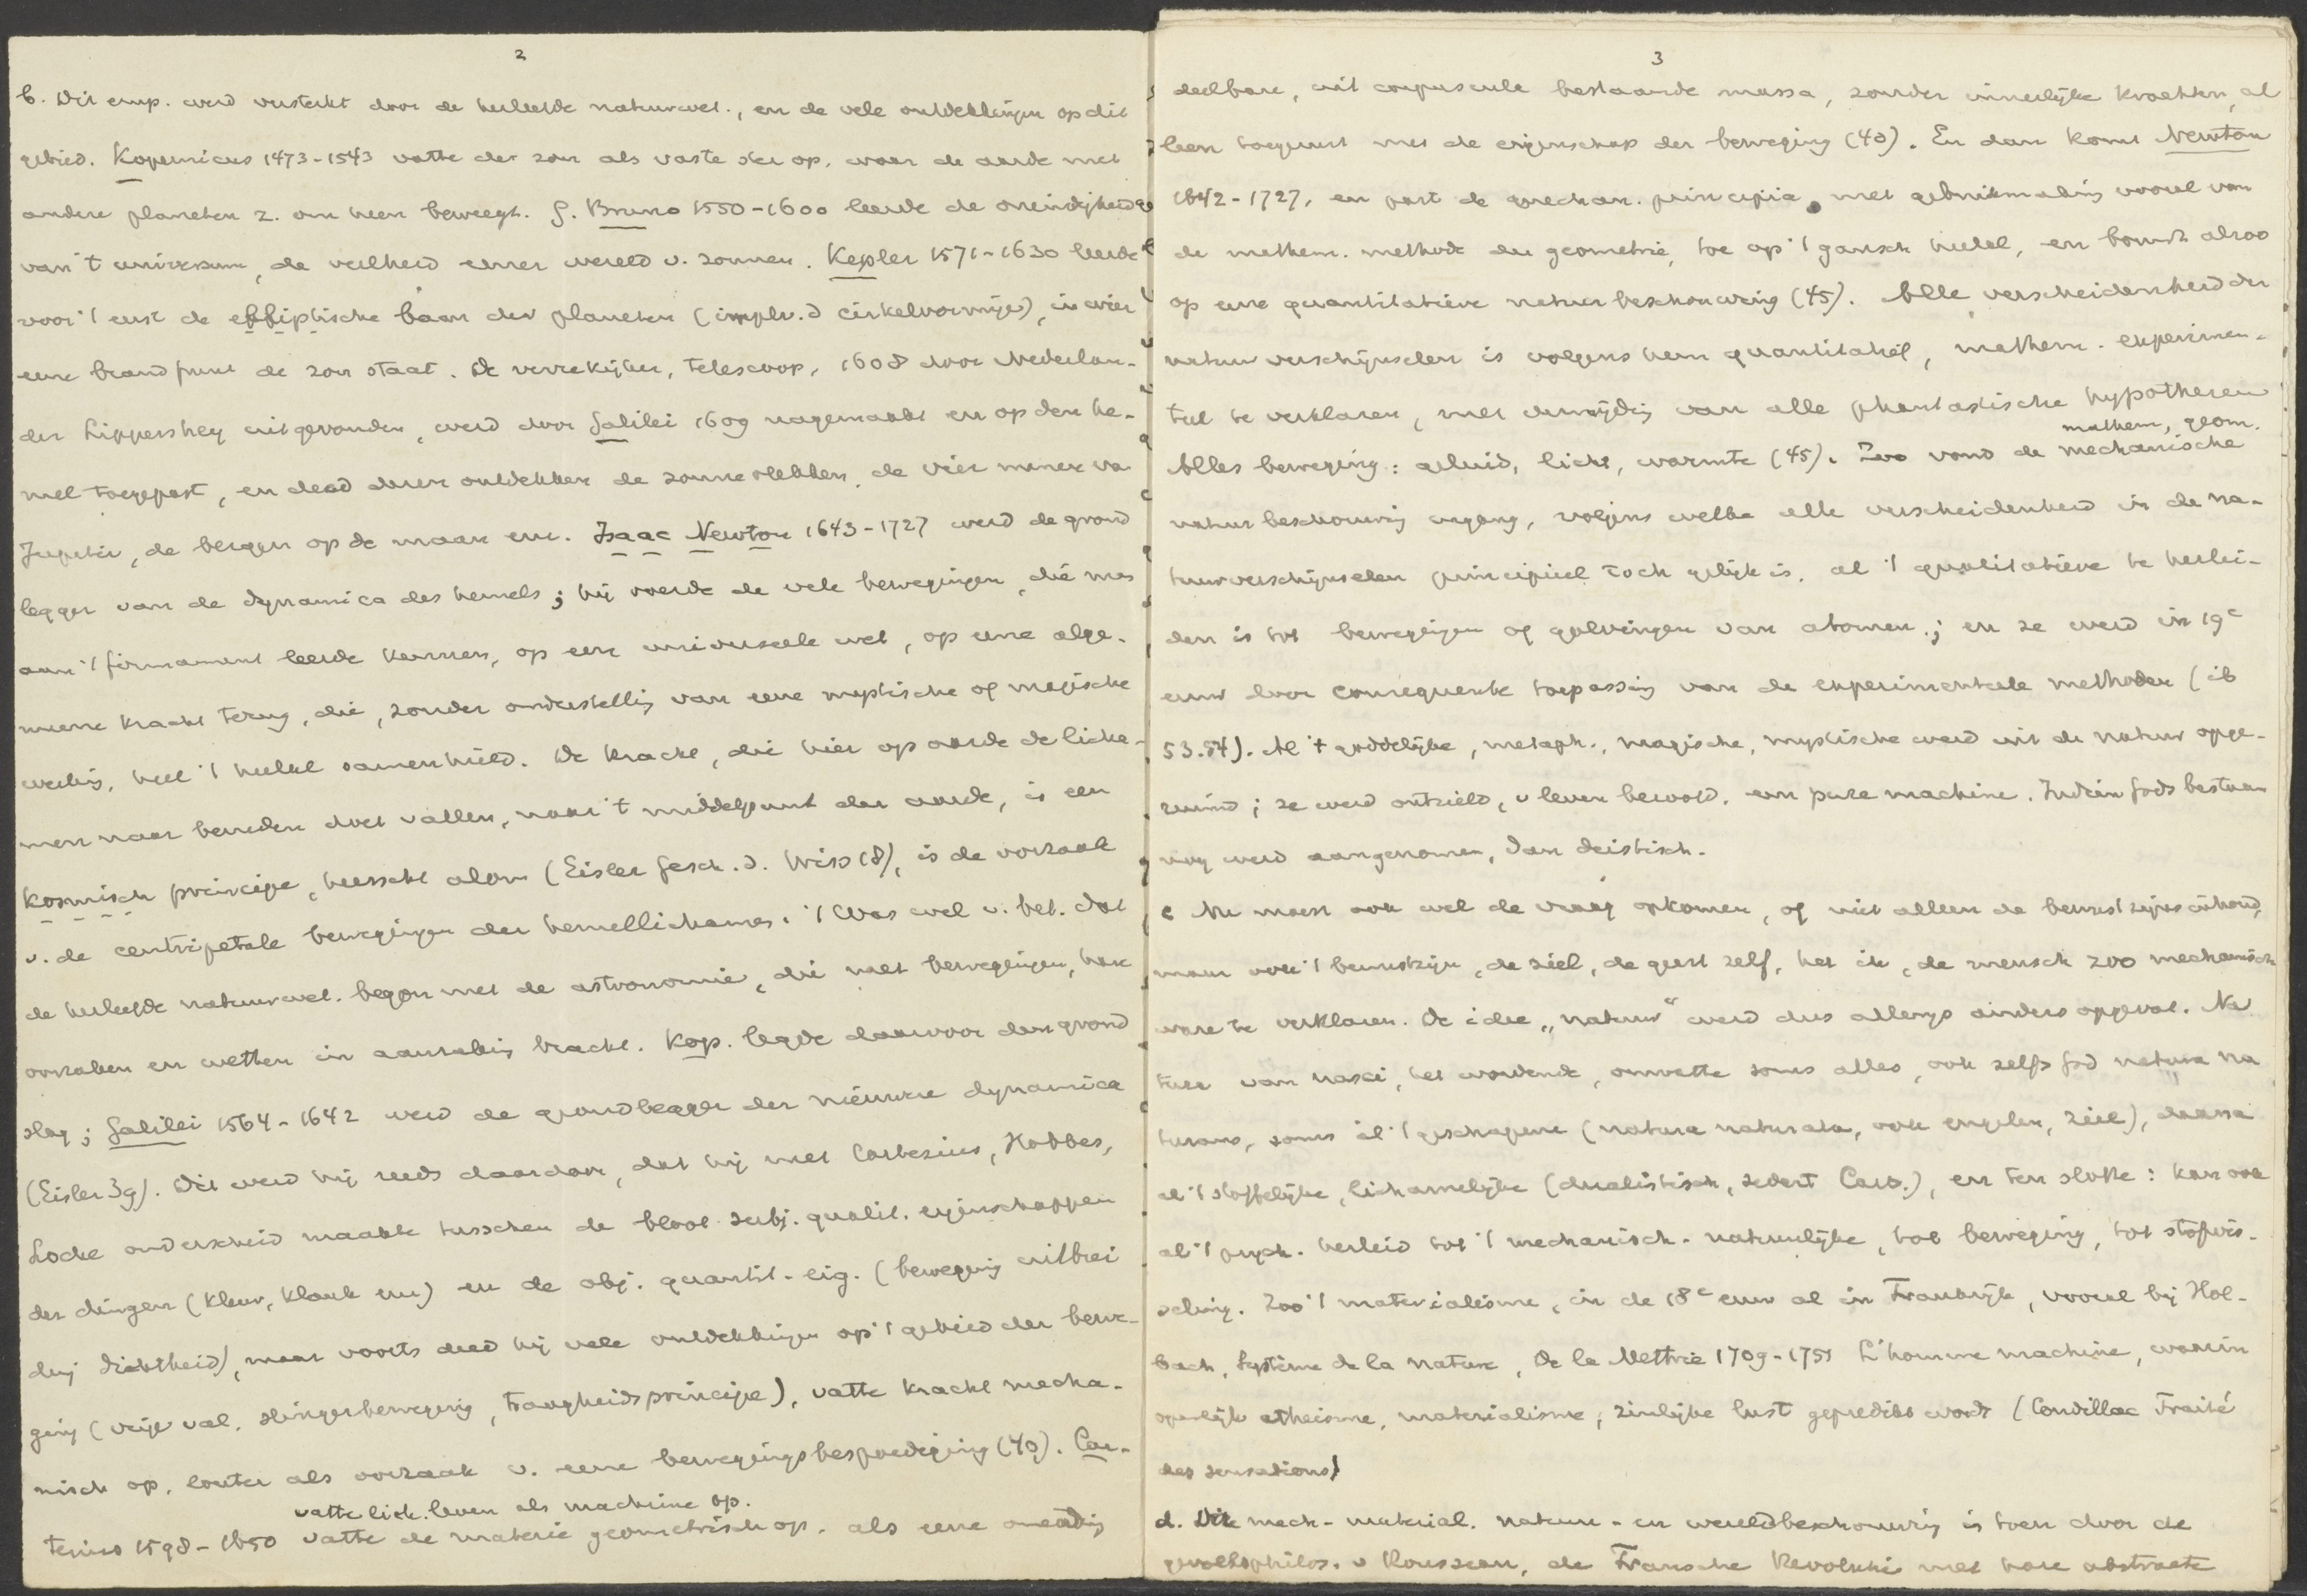 2
b. Dit emp. werd versterkt door de herleefde natuurwet., en de vele ontdekkingen op dit
gebied. Kopernicus 1473-1543 vatte de zon als vaste ster op, waar de aarde met
andere planeten z. om heen beweegt. G. Bruno 1550-1600 leerde de oneindigheid
van 't universum, de veelheid eener wereld v. zonnen. Kepler 1571-1630 leerde
voor 't eerst de elliptische baan der planeten (in plv. d cirkelvormige), in wier
eene brandpunt de zon staat. De verrekijker, telescoop, 1608 door Nederlan-
der Lippershey uitgevonden, werd door Galilei 1609 nagemaakt en op den he-
mel toegepast, en deed dezen ontdekken de zonnevlekken, de vier manen va
Jupiter, de bergen op de maan enz. Isaac Newton 1643-1727 werd de grond
legger van de dynamica des hemels; hij voerde de vele bewegingen, die men
aan 't firmament leerde kennen, op een universeele wet, op eene alge-
meene kracht terug, die, zonder onderstelling van eene mystische of magische
werking, heel 't heelal samenhield. De kracht, die hier op aarde de licha-
men naar beneden doet vallen, naar 't middelpunt der aarde, is een
kosmisch principe, heerscht alom (Eisler Gesch. d. Wiss 18), is de oorzaak
v. de centripetale bewegingen der hemellichamen. 't Was wel v. bet. dat
de herleefde natuurwet. begon met de astronomie, die met bewegingen, hare
oorzaken en wetten in aanraking bracht. Kop. legde daarvoor den grond
slag; Galilei 1564-1642 werd de grondlegger der nieuwere dynamica
(Eisler 39). Dit werd hij reeds daardoor, dat hij met Cartesius, Hobbes,
Locke onderscheid maakte tusschen de bloot subj. qualit. eigenschappen
der dingen (kleur, klank enz) en de obj. quantit. eig. (beweging uitbrei
ding dichtheid), maar voorts deed hij vele ontdekkingen op 't gebied der bewe-
ging (vrije val, slingerbeweging, traagheidsprincipe), vatte kracht mecha-
nisch op, louter als oorzaak v. eene bewegingsbespoediging (40). Car-
vatte lich. leven als machine op.
tesius 1598-1650 vatte de materie geometrisch op, als eene oneindig
3
deelbare, uit corpuscula bestaande massa, zonder innerlijke krachten, al
leen toegerust met de eigenschap der beweging (40). En dan komt Newton
1642-1727, en past de mechan. principia, met gebruikmaking vooral van
de mathem. methode der geometrie, toe op 't gansch heelal, en bouwt alzoo
op eene quantitatieve natuurbeschouwing (45). Alle verscheidenheid der
natuurverschijnselen is volgens hem quantitatief, mathem. experimen-
teel te verklaren, met vermijding van alle phantastische hypothesen
mathem, geom.
Alles beweging: geluid, licht, warmte (45). Zoo vond de mechanische
natuurbeschouwing ingang, volgens welke alle verscheidenheid in de na-
tuurverschijnselen principieel toch gelijk is, al 't qualitatieve te herlei-
den is tot bewegingen of golvingen van atomen; en ze werd in 19e
eeuw door consequente toepassing van de experimenteele methoden (ib
53.54). Al 't goddelijke, metaph., magische, mystische werd uit de natuur opge-
ruimd; ze werd ontzield, v leven beroofd, een pure machine. Indien Gods bestaan
nog werd aangenomen, dan deistisch.
c Nu moest ook wel de vraag opkomen, of niet alleen de bewustzijnsinhoud,
maar ook 't bewustzijn, de ziel, de geest zelf, het ik, de mensch zoo mechanisch
ware te verklaren. De idee „natuur" werd dus allengs anders opgevat. Na
tura van nasci, het wordende, omvatte soms alles, ook zelfs God natura na
turans, soms al 't geschapene (natura naturata, ook engelen, ziel), daarna
al 't stoffelijke, lichamelijke (dualistisch, sedert Cart.), en ten slotte: kan ook
al 't psych. herleid tot 't mechanisch-natuurlijke, tot beweging, tot stofwis-
seling. Zoo 't materialisme, in de 18e eeuw al in Frankrijk, vooral bij Hol-
bach, Système de la nature, De la Mettrie 1709-1751 L'homme machine, waarin
openlijk atheisme, materialisme, zinlijke lust gepredikt wordt (Condillac Traité
des sensations)
d. Die mech-material. natuur- en wereldbeschouwing is toen door de
gevoelsphilos. v Rousseau, de Fransche Revolutie met hare abstracte